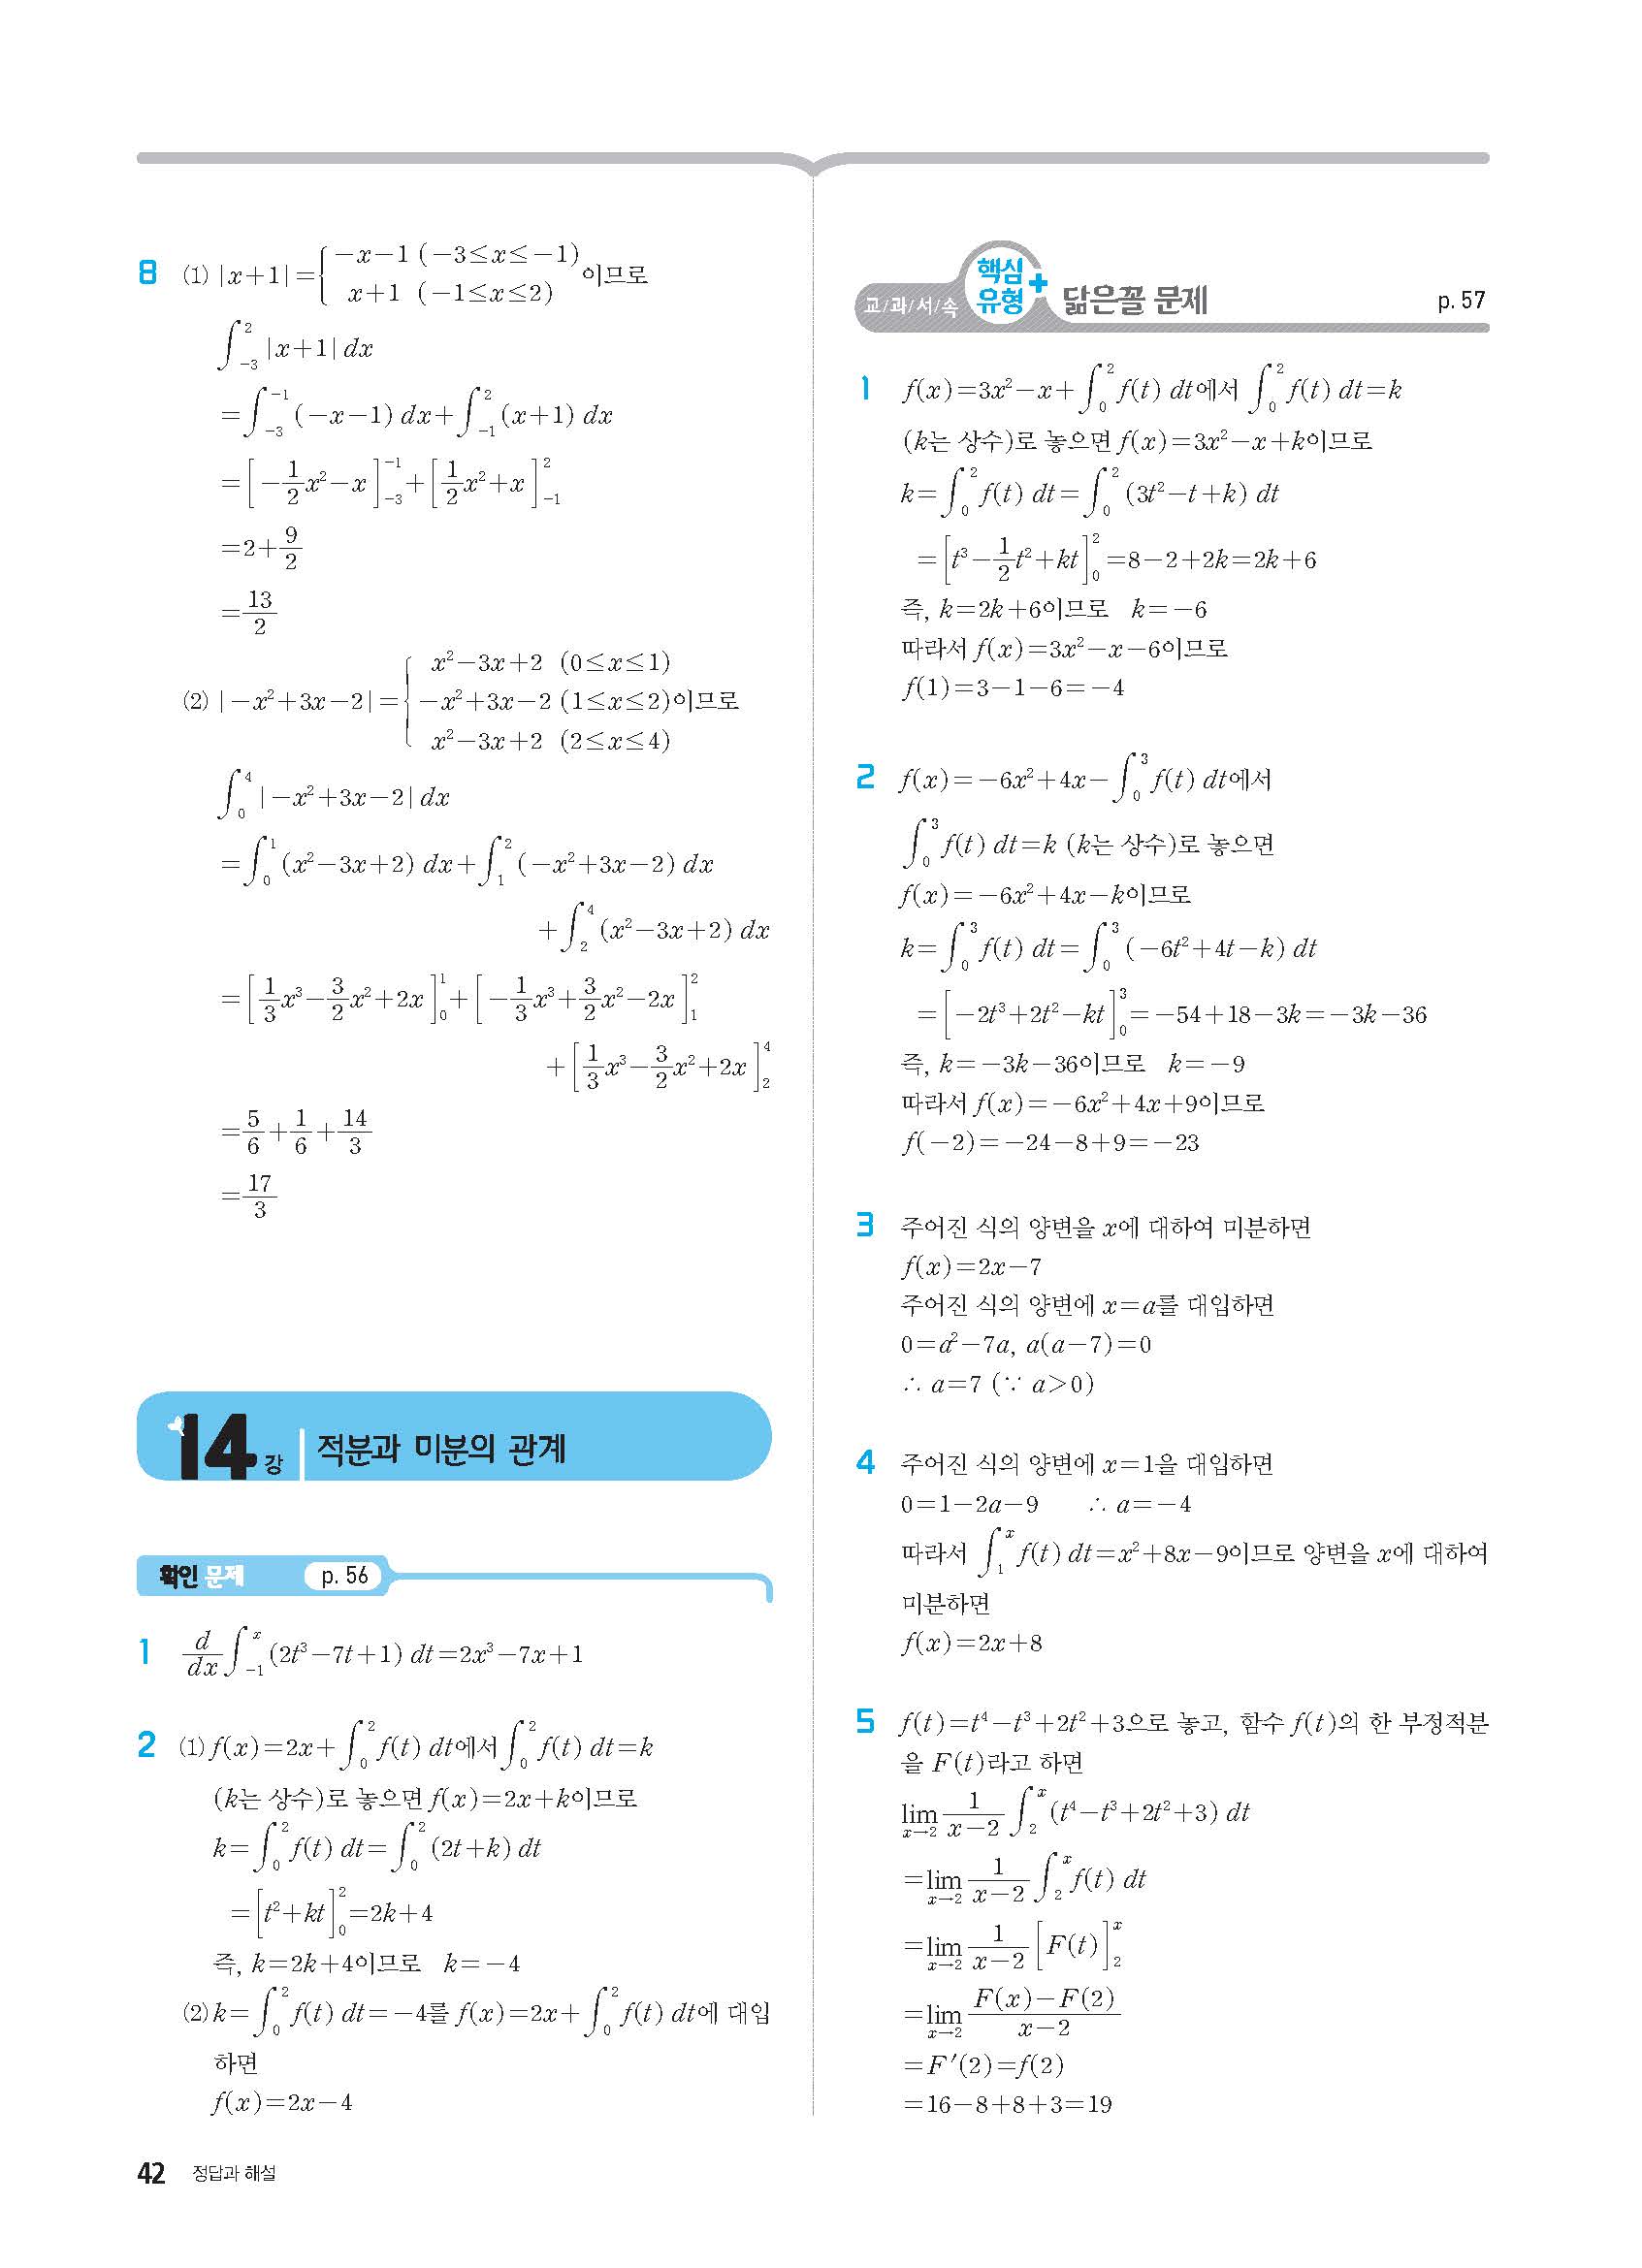 8 (1) |x+1|={ -x-1 (-3≤x≤-1)
x+1 (-1≤x≤2) 이므로
∫_{-3}^{2} |x+1| dx
=∫_{-3}^{-1} (-x-1) dx+∫_{-1}^{2} (x+1) dx
=[-1/2 x²-x]_{-3}^{-1}+[1/2 x²+x]_{-1}^{2}
=2+9/2
=13/2
(2) |-x²+3x-2|={ x²-3x+2 (0≤x≤1)
-x²+3x-2 (1≤x≤2)이므로
x²-3x+2 (2≤x≤4)
∫_{0}^{4} |-x²+3x-2| dx
=∫_{0}^{1} (x²-3x+2) dx+∫_{1}^{2} (-x²+3x-2) dx
+∫_{2}^{4} (x²-3x+2) dx
=[1/3 x³-3/2 x²+2x]_{0}^{1}+[-1/3 x³+3/2 x²-2x]_{1}^{2}
+[1/3 x³-3/2 x²+2x]_{2}^{4}
=5/6+1/6+14/3
=17/3
14강 적분과 미분의 관계
확인 문제 p. 56
1 d/dx ∫_{-1}^{x} (2t³-7t+1) dt=2x³-7x+1
2 (1) f(x)=2x+∫_{0}^{2} f(t) dt에서 ∫_{0}^{2} f(t) dt=k
(k는 상수)로 놓으면 f(x)=2x+k이므로
k=∫_{0}^{2} f(t) dt=∫_{0}^{2} (2t+k) dt
=[t²+kt]_{0}^{2}=2k+4
즉, k=2k+4이므로 k=-4
(2) k=∫_{0}^{2} f(t) dt=-4를 f(x)=2x+∫_{0}^{2} f(t) dt에 대입
하면
f(x)=2x-4
교/과/서/속 핵심 유형+ 닮은꼴 문제 p. 57
1 f(x)=3x²-x+∫_{0}^{2} f(t) dt에서 ∫_{0}^{2} f(t) dt=k
(k는 상수)로 놓으면 f(x)=3x²-x+k이므로
k=∫_{0}^{2} f(t) dt=∫_{0}^{2} (3t²-t+k) dt
=[t³-1/2 t²+kt]_{0}^{2}=8-2+2k=2k+6
즉, k=2k+6이므로 k=-6
따라서 f(x)=3x²-x-6이므로
f(1)=3-1-6=-4
2 f(x)=-6x²+4x-∫_{0}^{3} f(t) dt에서
∫_{0}^{3} f(t) dt=k (k는 상수)로 놓으면
f(x)=-6x²+4x-k이므로
k=∫_{0}^{3} f(t) dt=∫_{0}^{3} (-6t²+4t-k) dt
=[-2t³+2t²-kt]_{0}^{3}=-54+18-3k=-3k-36
즉, k=-3k-36이므로 k=-9
따라서 f(x)=-6x²+4x+9이므로
f(-2)=-24-8+9=-23
3 주어진 식의 양변을 x에 대하여 미분하면
f(x)=2x-7
주어진 식의 양변에 x=a를 대입하면
0=a²-7a, a(a-7)=0
∴ a=7 (∵ a>0)
4 주어진 식의 양변에 x=1을 대입하면
0=1-2a-9 ∴ a=-4
따라서 ∫_{1}^{x} f(t) dt=x²+8x-9이므로 양변을 x에 대하여
미분하면
f(x)=2x+8
5 f(t)=t⁴-t³+2t²+3으로 놓고, 함수 f(t)의 한 부정적분
을 F(t)라고 하면
lim_{x→2} 1/(x-2) ∫_{2}^{x} (t⁴-t³+2t²+3) dt
=lim_{x→2} 1/(x-2) ∫_{2}^{x} f(t) dt
=lim_{x→2} 1/(x-2) [F(t)]_{2}^{x}
=lim_{x→2} (F(x)-F(2))/(x-2)
=F′(2)=f(2)
=16-8+8+3=19
42 정답과 해설